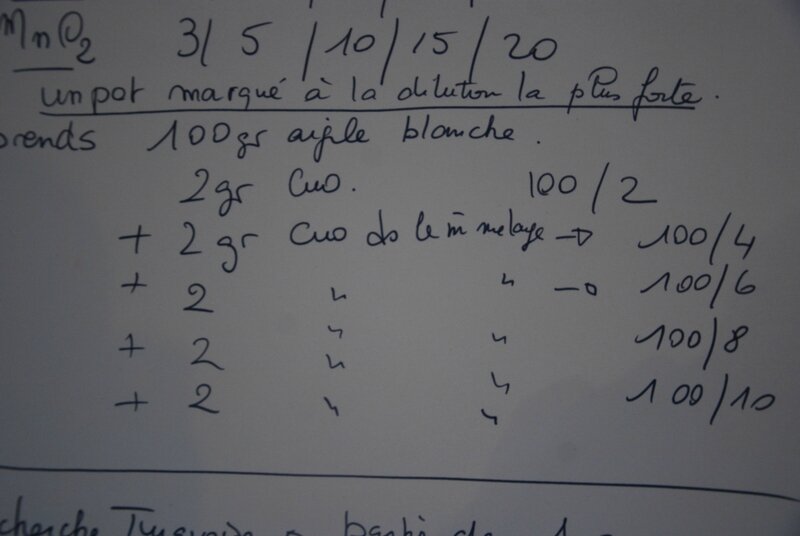 MnO2 3/ 5 / 10 / 15 / 20
un pot marqué à la dilution la plus forte.
prends 100gr argile blanche.
2gr CuO. 100 / 2
+ 2gr CuO ds le m̄ melange → 100/4
+ 2 " " → 100/6
+ 2 " " 100/8
+ 2 " " 100/10
cherche partir de